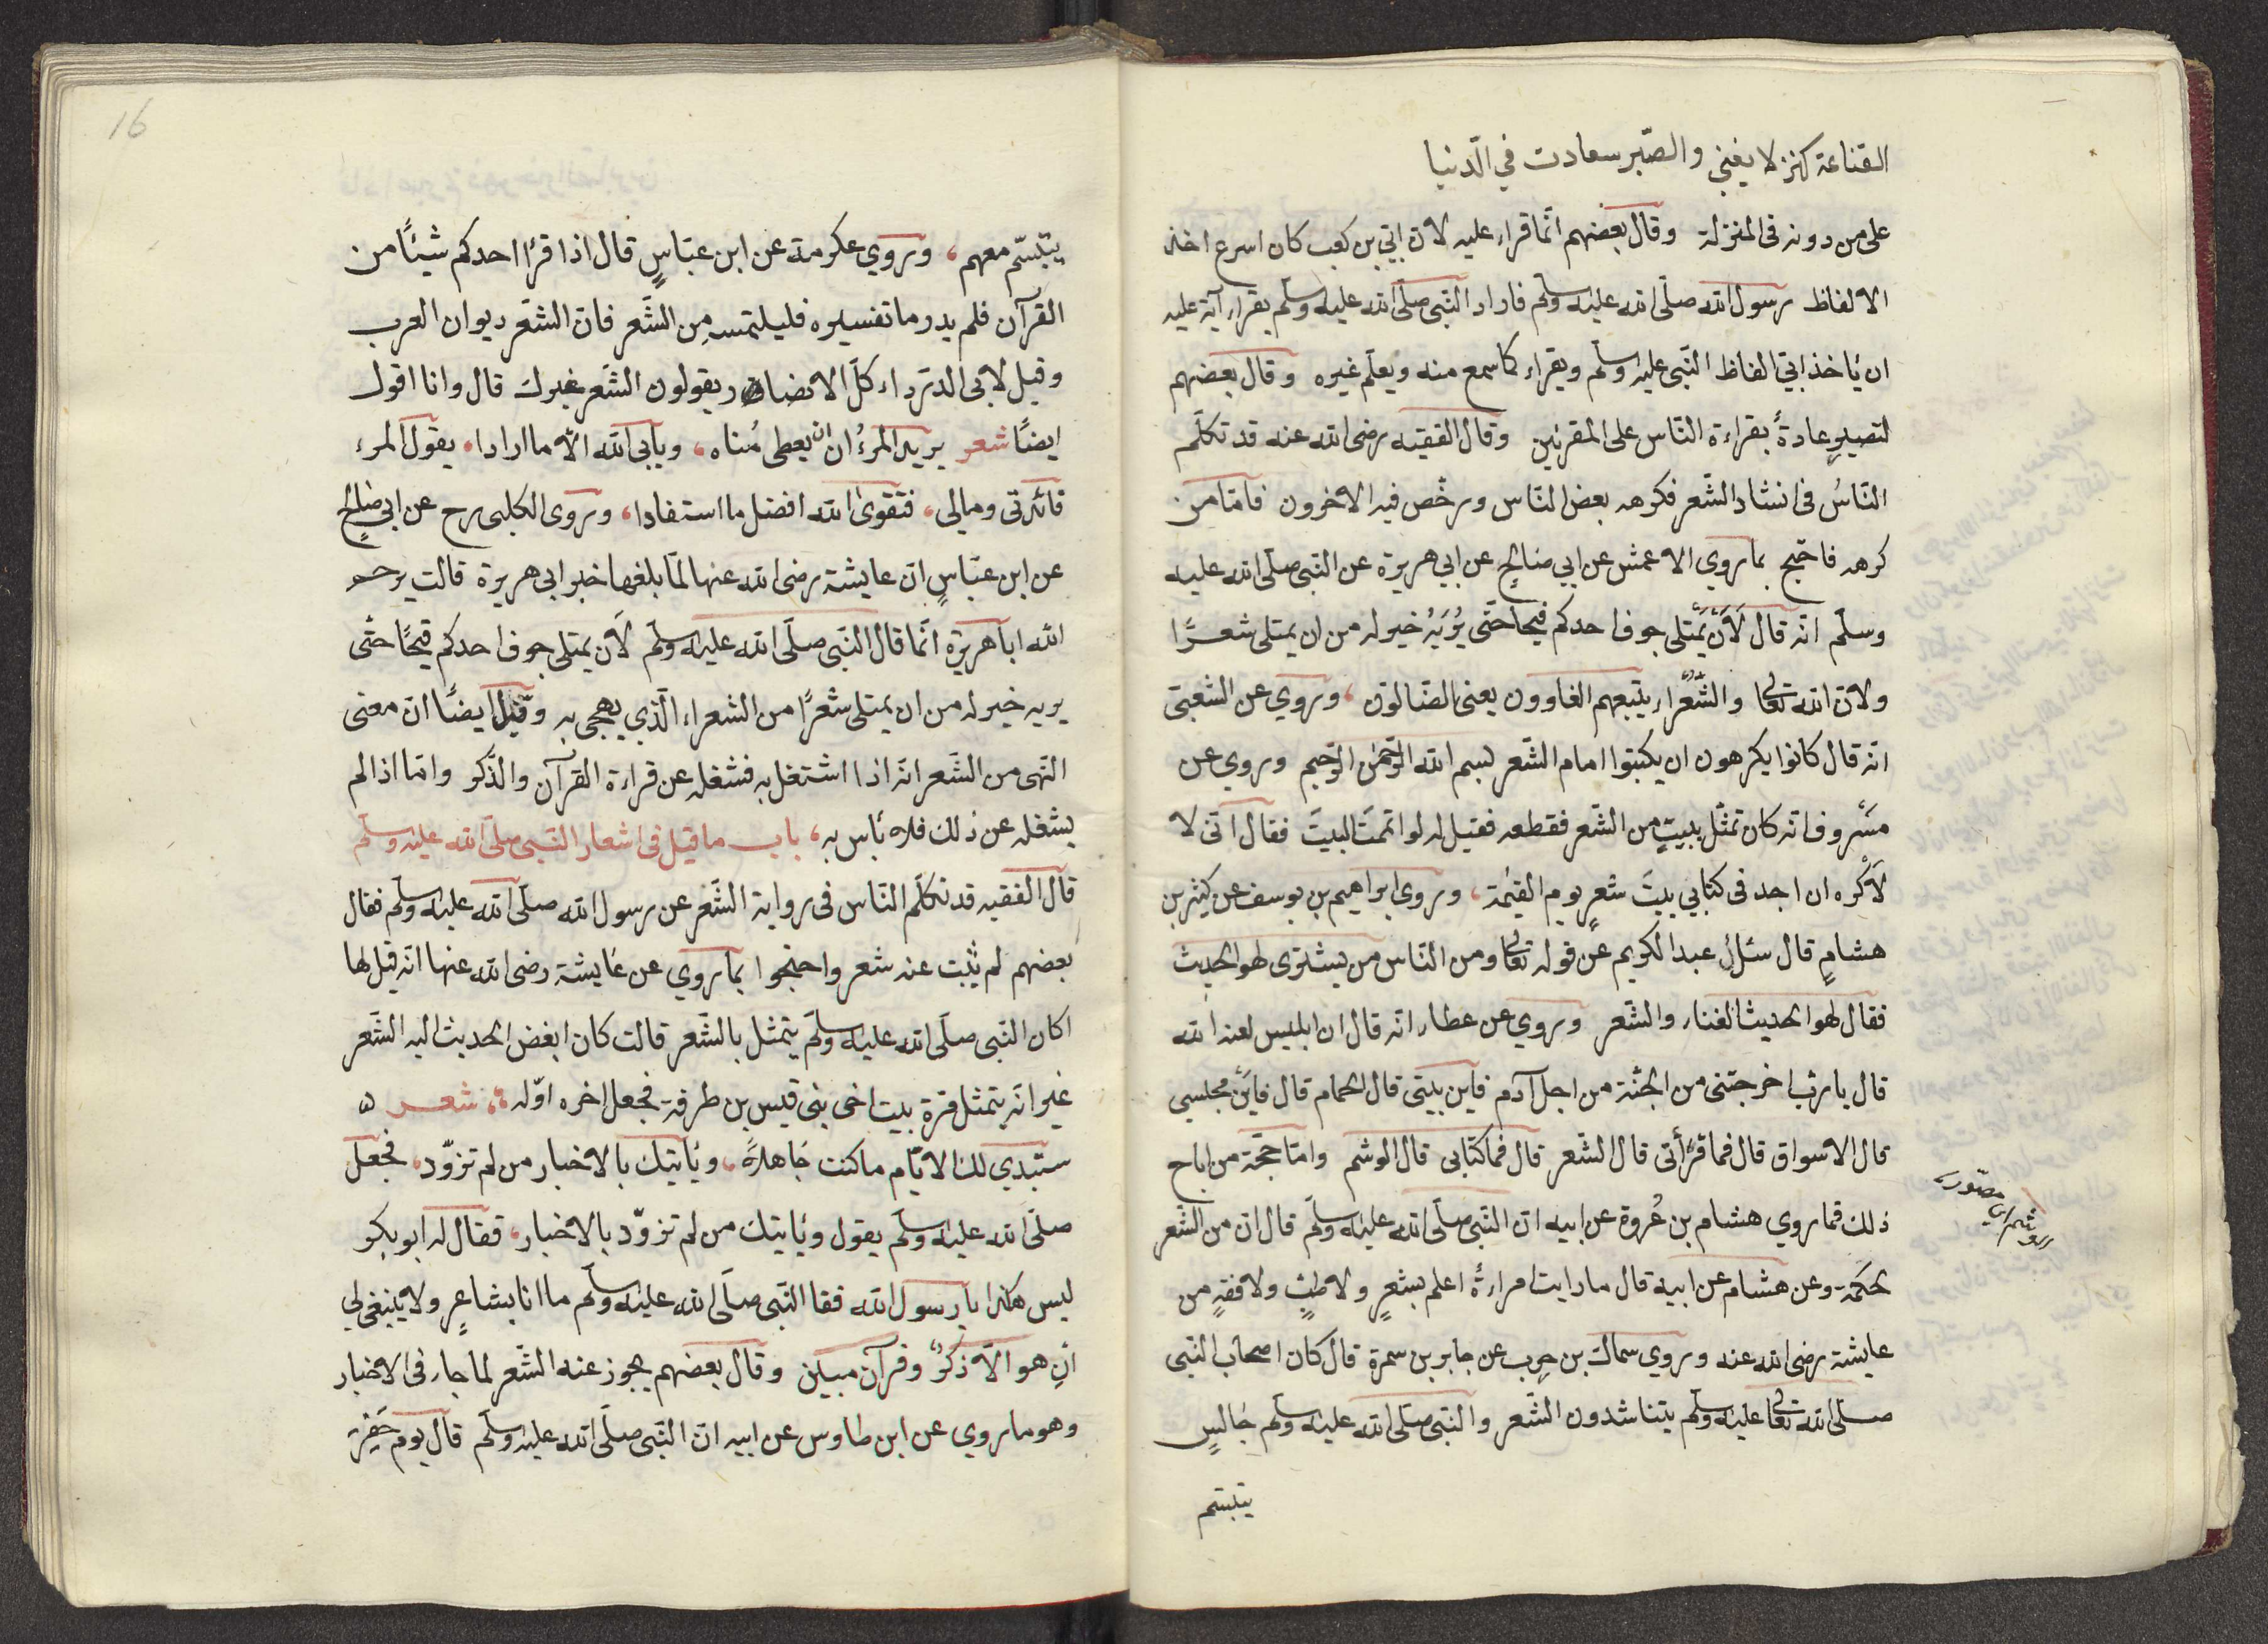 القناعة كنز لا يغنى والصّبر سعادت في الدّنيا
على من دونه فى المنزلة وقال بعضهم انّما قراء عليه لانّ ابيّ بن كعب كان اسرع اخذ
الالفاظ رسول الله صلّى الله عليه وسلّم فاراد النّبى صلّى الله عليه وسلّم بقراء آية عليه
ان ئاخذ ابيّ الفاظ النّبى عليه وسلّم ويقراء كما سمع منه ويعلّم غيره وقال بعضهم
لتصير عادةً بقراءة النّاس على المقرئين وقال الفقيه رضى الله عنه قد تكلّم
النّاسُ فى انشاد الشّعر فكرهه بعض النّاس ورخّص فيه الاخرون فامّا من
كرهه فاحّتج بما روي الاعمش عن ابي صالحٍ عن ابي هريرة عن النّبى صلّى الله عليه
وسلّم انّه قال لَاَنْ يَمْتلى جوف احدكم قيحا حتّى يُرَيَهُ خير له من ان يمتلى شعرًا
ولانّ الله تعالى والشُّعراء يتّبعهم الغاوون يعنى الضّالّون، وروي عن الشّعبىّ
انّه قال كانوا يكرهون ان يكتبوا امام الشّعر بسم الله الرّحمن الرّحيم وروي عن
مسْروف انّه كان تمثّل ببيتٍ من الشّعر فقطعه فقيل له لو اتممتَ البيتَ فقال انّى لا
لَاَكْره ان اجد فى كتابي بيتَ شعرٍ يوم القيٰمة، وروى ابراهيم بن يوسف عن كيثر بن
هشامٍ قال سئل عبد الكريم عن قوله تعالى ومن النّاس من يشترى لهو الحديث
فقال لهو الحديث الغناء والشّعر وروي عن عطاء انّه قال ان ابليس لعنه الله
قال يا ربّ اخرجتنى من الجنّة من اجل آدم فاين بيتى قال الحمام قال فاينَ مجلسي
قال الاسواق قال فما قرأتى قال الشّعر قال فما كتابى قال الوشم وامّا حجّة من اباح
ذلك فما روي هشام بن عُروة عن ابيه انّ النّبى صلّى الله عليه وسلّم قال انّ من الشّعر
لحكمة وعن هشام عن ابيه قال ما رايت امراءةً اعلم بشعرٍ ولا طبٍّ ولا فقهٍ من
عايشة رضى الله عنه وروي سماك بن حرب عن جابر بن سمرة قال كان اصحاب النّبى
صلّى الله تعالى عليه وسلّم يتناشدون الشّعر والنّبى صلّى الله عليه وسلّم جالسٍ
يتبسّم
16
يتبسّم معهم، وروي عكرمة عن ابن عبّاسٍ قال اذا قرٔا احدكم شيئًا من
القرآن فلم يدر ما تفسيره فليلتمسه مِن الشّعر فانّ الشّعر ديوان العرب
وقيل لابى الدّرداء كلّ الانصار يقولون الشّعر غيرك قال وانا اقول
ايضًا شعر يريد المرءُ ان يعطى مُناه، وئابى الله الّا ما ارادا، يقول المرء
فائدتى ومالى، فتقوىٰ الله افضل ما استفادا، وروى الكلبى رح عن ابي صالحٍ
عن ابن عبّاسٍ انّ عايشة رضى الله عنها لمّا بلغها خبر ابى هريرة قالت يرحم
الله ابا هريرة انّما قال النّبى صلّى الله عليه وسلّم لَان يمتلى جوف احدكم قيحًا حتّى
يريه خير له من ان يمتلى شعرًا من الشعراء الّذي يهجى به وقيل ايضًا انّ معنى
النّهى من الشّعر انّه اذا اشتغل به فشغله عن قراءة القرآن والذّكر وامّا اذا لم
يشغله عن ذلك فلا بٔاس به، باب ما قيل فى اشعار النّبى صلّى الله عليه وسلّم
قال الفقيه قد تكلّم النّاس فى رواية الشّعر عن رسول الله صلّى الله عليه وسلّم فقال
بعضهم لم يثبت عنه شعر واحتجوا بما روي عن عايشة رضى الله عنها انّه قيل لها
اكان النّبى صلّى الله عليه وسلّم يتمثل بالشّعر قالت كان ابغض الحديث اليه الشّعر
غير انّه يتمثل مرة بيت اخى بنى قيس بن طرفة فجعل اخره اوّله، شعر
ستبدي لك الايّام ما كنت جاهلاً، وئاتيك بالاخبار من لم تزوّد، فجعل
صلّى الله عليه وسلّم يقول وئاتيك من لم تزوّد بالاخبار، فقال له ابو بكر
ليس هكذا يا رسول الله فقا النّبى صلّى الله عليه وسلّم ما انا بشاعرٍ ولا ينبغى لي
ان هو الّا ذكرٌ وقرآن مبين وقال بعضهم يجوز عنه الشّعر لما جاء فى الاخبار
وهو ما روي عن ابن طاوس عن ابيه انّ النّبى صلّى الله عليه وسلّم قال يوم